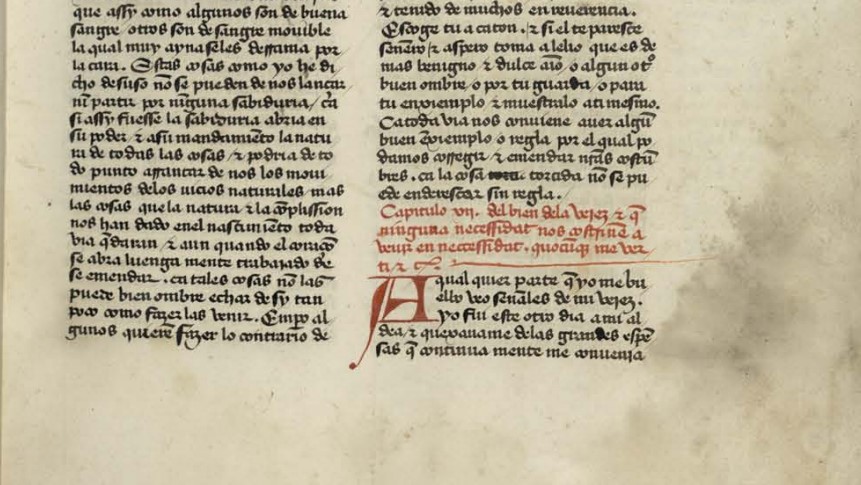 que assy como algunos son de buena
sangre otros son de sangre mouible
la qual muy ayna se les derrama por
la cara. Estas cosas como yo he di
cho desuso nõ se pueden de nos lançar
nĩ partir por njnguna sabiduria / ca
si assy fuesse la sabiduria abria en
su poder / ⁊ a su mandamiẽto la natu
ra de todas las cosas / ⁊ podria de to
do punto arrancar de nos los moui
mientos delos vicios naturales / mas
las cosas que la natura ⁊ la cõplission
nos han dado en el nasçimiẽto toda
via q̃daran / ⁊ aun quando el coraçõ
se abra luenga mente trabajado de
se emendar. ca tales cosas nõ las
puede bien ombre echar de sy tan
poco como fazer las venir. Empo al
gunos quierẽ fazer lo contrario de
⁊ tenido de muchos en reuerençia.
Escoge tu a caton. ⁊ si el te paresce
seuero / ⁊ aspero toma a lelio que es de
mas benigno ⁊ dulce
buen ombre / o por tu guarda / o para
tu enxiemplo ⁊ muestralo ati mesmo.
Ca toda via nos conuiene auer algũ
buen exiemplo o regla por el qual po
damos corregir ⁊ emendar nr̃as costũ
bres. ca la cosa torçida nõ se pu
ede endereszar sin regla.
Capitulo vij. del bien dela vejez ⁊ q̃
njnguna necessidat nos costriñe a
venir en necessidat. quocũq̃ me ver
ti ⁊ c̃.
A qual quier parte q̃ yo me bu
eluo veo señales de mi vejez.
yo fui este otro dia a mi al
dea ⁊ quexauame delas grandes espẽ
sas q̃ continua mente me conuenia